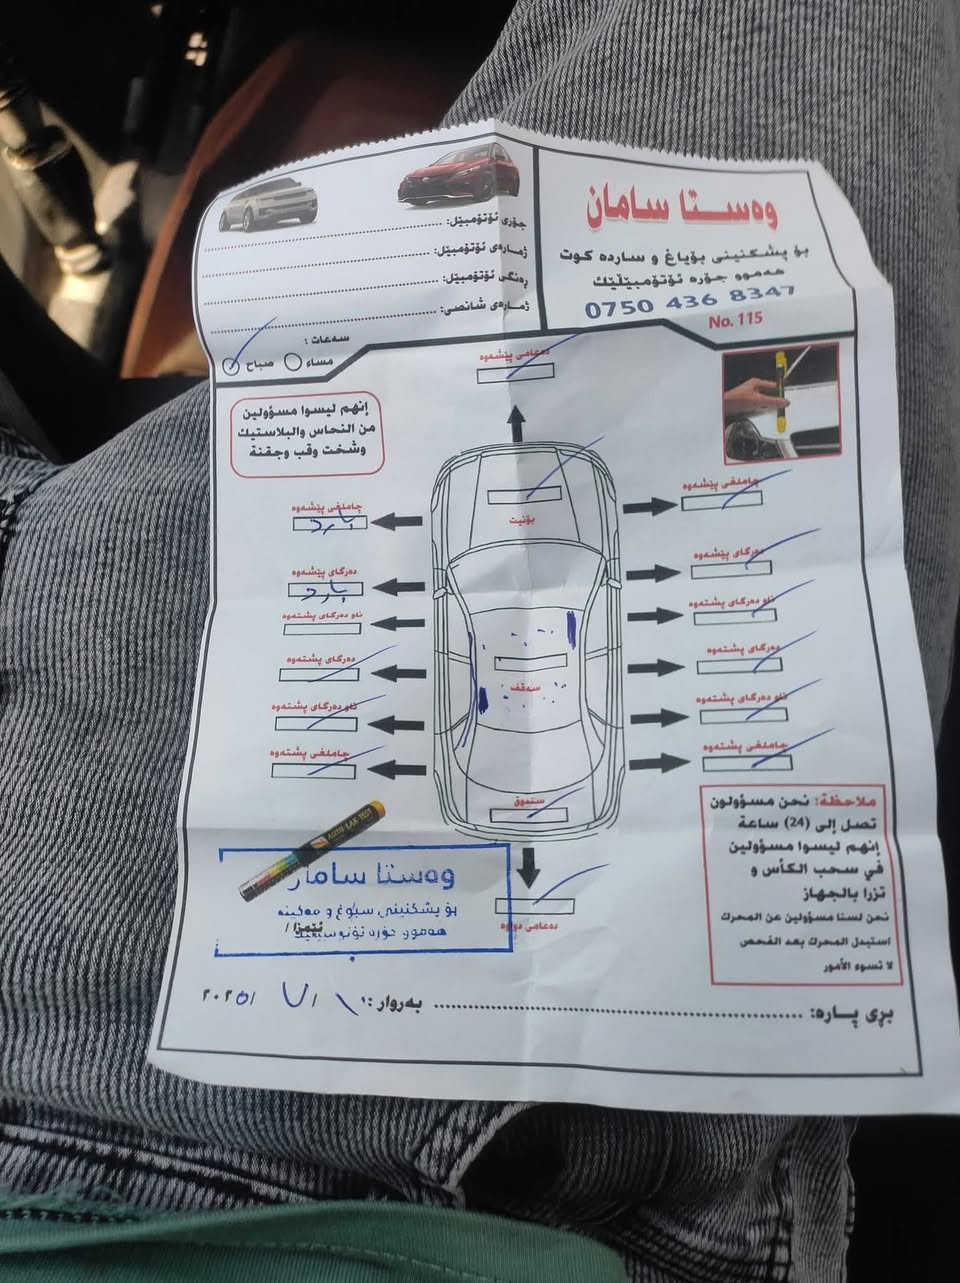 وەستا سامان
بۆ پشکنینی بۆیاغ و ساردە کوت
هەموو جۆرە ئۆتۆمبێڵێك
0750 436 8347
No. 115
جۆری ئۆتۆمبێل:
ژمارەی ئۆتۆمبێل:
ڕەنگی ئۆتۆمبێل:
ژمارەی شانصی:
سەعات :
صباح
مساء
دەعامی پێشەوە
إنهم ليسوا مسؤولين
من النحاس والبلاستيك
وشخت وقب وجقنة
بۆنیت
سەقف
صندوق
چاملغی پێشەوە
بارد
دەرگای پێشەوە
بارد
ناو دەرگای پشتەوە
دەرگای پشتەوە
ناو دەرگای پشتەوە
چاملغی پشتەوە
چاملغی پێشەوە
دەرگای پێشەوە
ناو دەرگای پشتەوە
دەرگای پشتەوە
ناو دەرگای پشتەوە
چاملغی پشتەوە
ملاحظة: نحن مسؤولون
تصل إلى (24) ساعة
إنهم ليسوا مسؤولين
في سحب الكأس و
تزرا بالجهاز
نحن لسنا مسؤولين عن المحرك
استبدل المحرك بعد الفحص
لا تسوء الأمور
AUTO LAK TEST
وەستا سامان
بۆ پشکنینی سبوغ و مەکینە
هەموو جۆرە ئۆتۆمبێلێك
ئیمزا /
دەعامی دواوە
بڕی پارە:
بەروار : ١ / ٧ / ٢٠٢٥